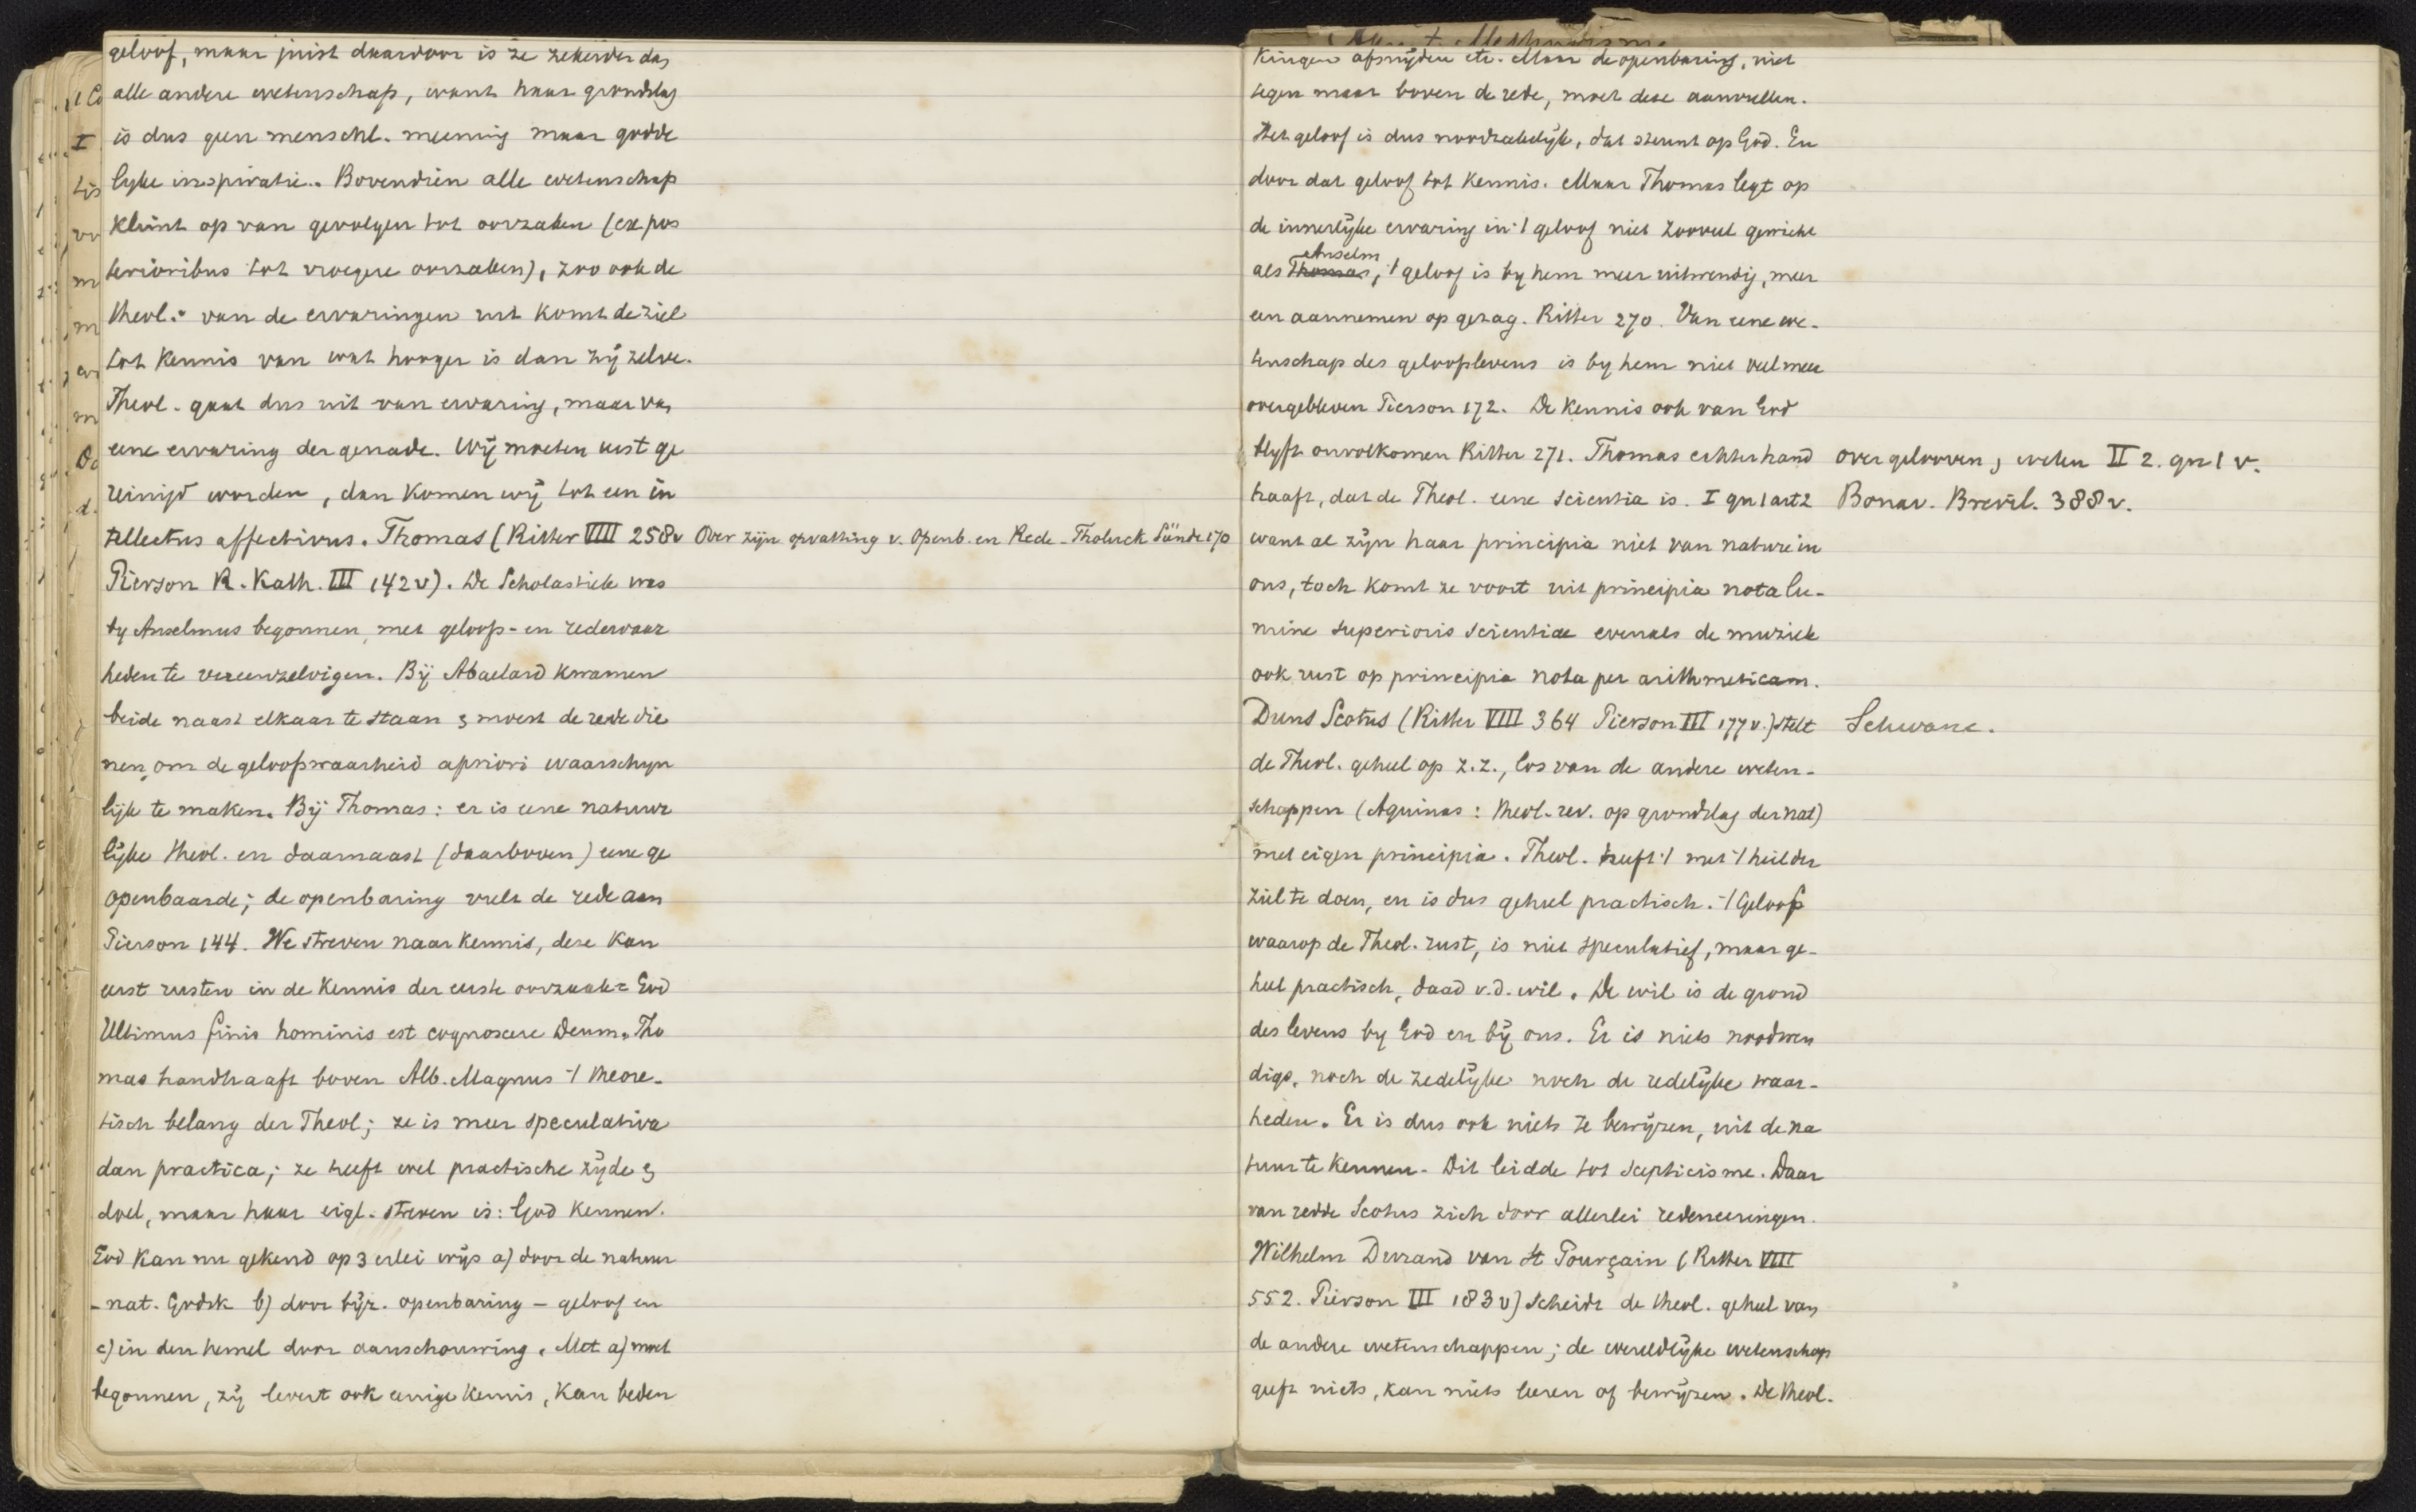 geloof, maar juist daardoor is ze zekerder dan
alle andere wetenschap, want haar grondslag
is dus geen menschl. meening maar godde
lyke inspiratie. Bovendien alle wetenschap
klimt op van gevolgen tot oorzaken (ex pos
terioribus tot vroegere oorzaken), zoo ook de
theol.: van de ervaringen uit komt de ziel
tot kennis van wat hooger is dan zij zelve.
Theol. gaat dus uit van ervaring, maar van
eene ervaring der genade. Wij moeten eerst ge
reinigd worden, dan komen wij tot een in
tellectus affectivus. Thomas (Ritter VIII 258v Over zijn opvatting v. Openb. en Rede - Tholuck Sünde 170
Pierson R. Kath. III 142v). De Scholastiek was
by Anselmus begonnen, met geloofs- en redewaar
heden te vereenzelvigen. Bij Abaelard kwamen
beide naast elkaar te staan & moest de rede die
nen, om de geloofswaarheid apriori waarschyn
lijk te maken. Bij Thomas: er is eene natuur
lijke theol. en daarnaast (daarboven) eene ge
openbaarde; de openbaring vult de rede aan
Pierson 144. We streven naar kennis, deze kan
eerst rusten in de kennis der eerste oorzaak = God
Ultimus finis hominis est cognoscere Deum. Tho
mas handhaaft boven Alb. Magnus 't theore-
tisch belang der Theol; ze is meer speculativa
dan practica; ze heeft wel practische zijde &
doel, maar haar eigl. streven is: God kennen.
God kan nu gekend op 3 erlei wijs a) door de natuur
- nat. Godsk b) door bijz. openbaring - geloof en
c) in den hemel door aanschouwing. Met a) moet
begonnen, zij levert ook eenige kennis, kan beden
kingen afsnijden etc. Maar de openbaring, niet
tegen maar boven de rede, moet deze aanvullen.
Het geloof is dus noodzakelijk, dat steunt op God. En
door dat geloof tot kennis. Maar Thomas legt op
de innerlijke ervaring in 't geloof niet zooveel gewicht
als Thomas Anselm, 't geloof is by hem meer uitwendig, meer
een aannemen op gezag. Ritter 270. Van eene we-
tenschap des geloofslevens is by hem niet veel meer
overgebleven Pierson 172. De kennis ook van God
blyft onvolkomen Ritter 271. Thomas echter hand over gelooven & weten II 2. qu 1 v.
haaft, dat de Theol. eene scientia is. I qu 1 art 2 Bonav. Brevil. 388v.
want al zijn haar principia niet van nature in
ons, toch komt ze voort uit principia nota lu-
mine superioris scientiae evenals de muziek
ook rust op principia nota per arithmeticam.
Duns Scotus (Ritter VIII 364 Pierson III 177v.) stelt Schwane.
de Theol. geheel op z.z., los van de andere weten-
schappen (Aquinas: theol. rev. op grondslag der nat)
met eigen principia. Theol. heeft 't met 't heil der
ziel te doen, en is dus geheel practisch. 't Geloof
waarop de Theol. rust, is niet speculatief, maar ge-
heel practisch, daad v.d. wil. De wil is de grond
des levens by God en bij ons. Er is niets noodwen
digs, noch de zedelijke noch de redelijke waar-
heden. Er is dus ook niets te bewijzen, uit de na
tuur te kennen. Dit leidde tot scepticisme. Daar
van redde Scotus zich door allerlei redeneeringen.
Wilhelm Durand van St Pourçain (Ritter VIII
552. Pierson III 183v) scheidt de theol. geheel van
de andere wetenschappen; de wereldlijke wetenschap
geeft niets, kan niets leeren of bewijzen. De theol.